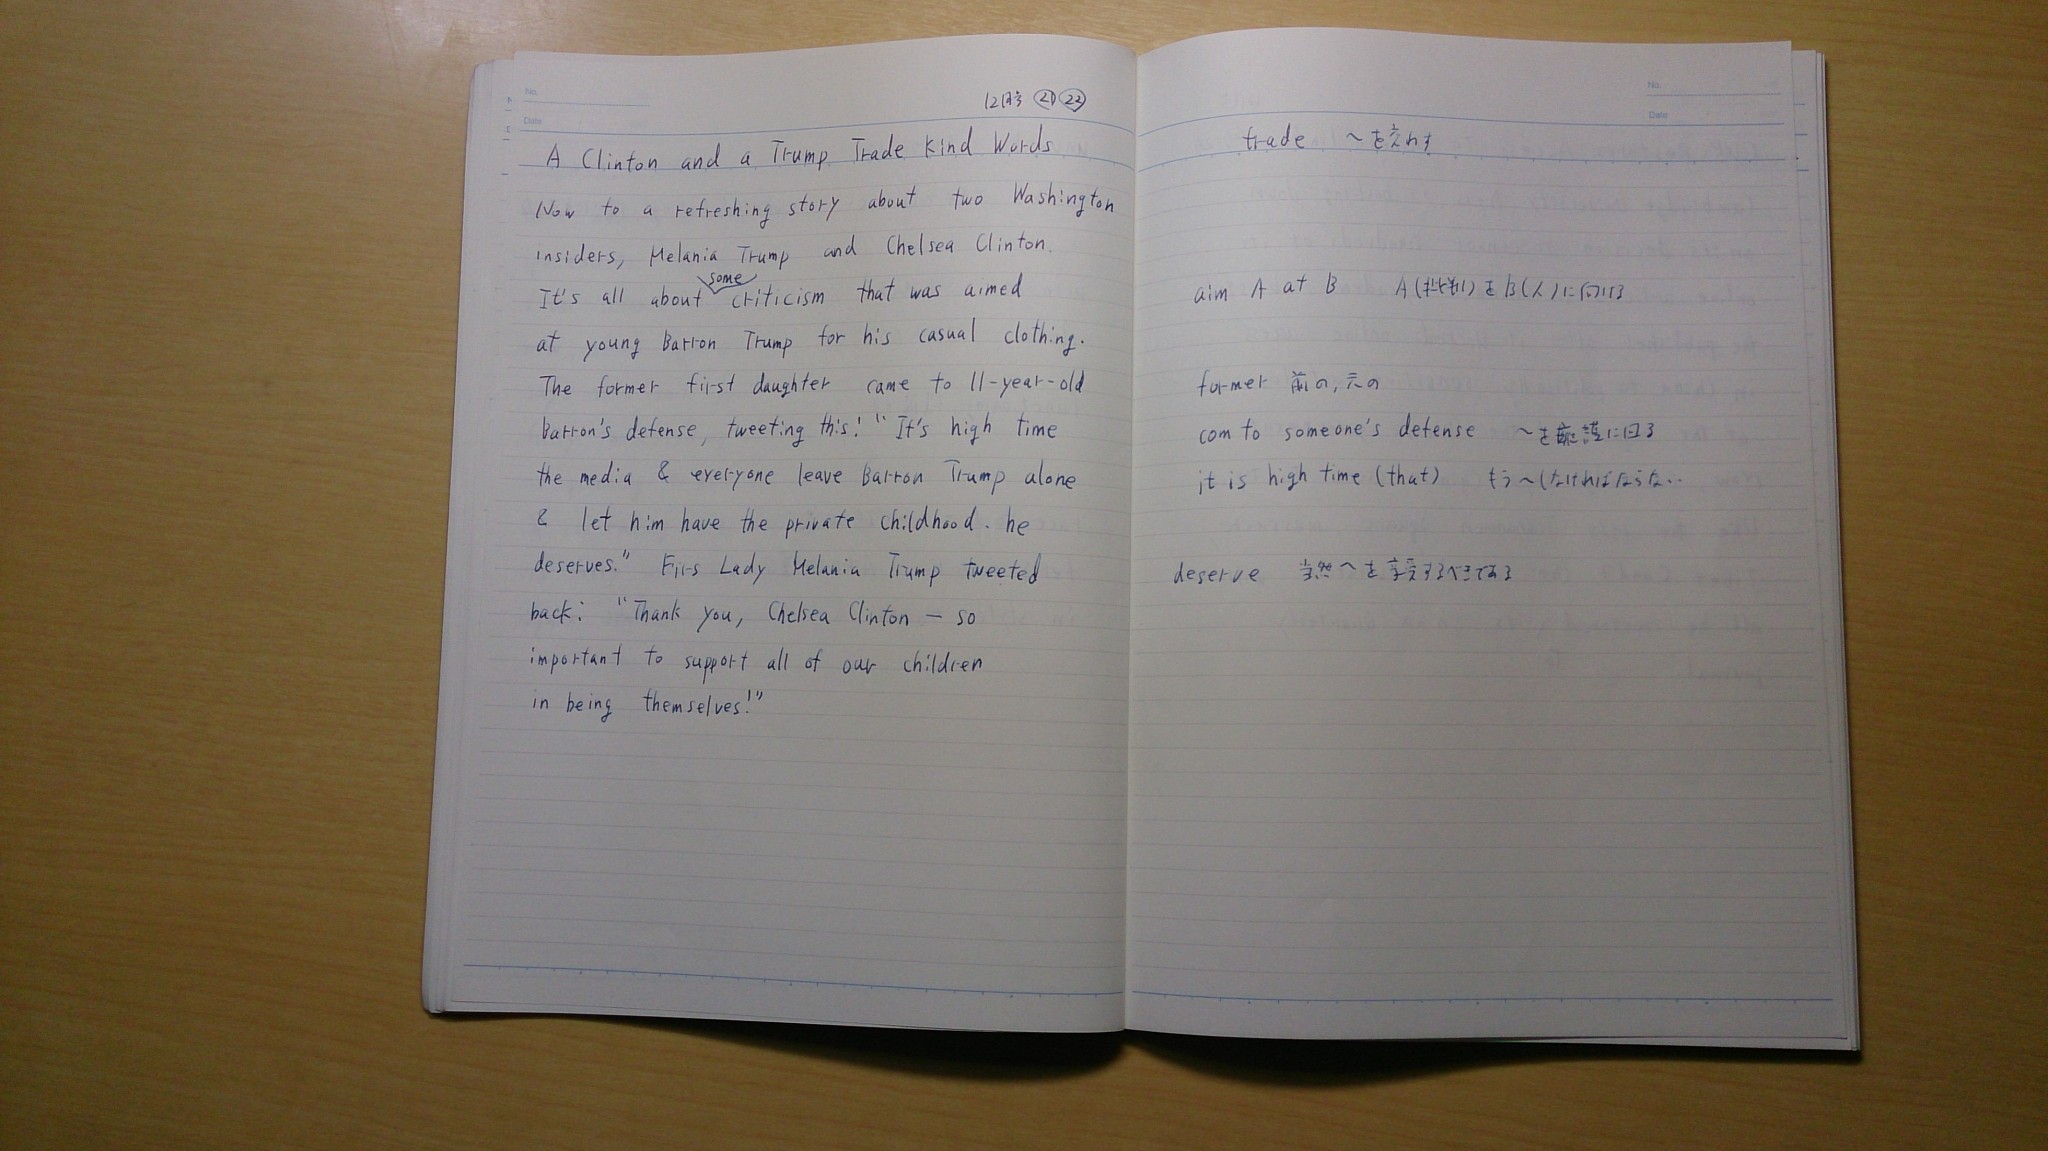 No.
Date
12月号 21 22
A Clinton and a Trump Trade Kind Words
Now to a refreshing story about two Washington
insiders, Melania Trump and Chelsea Clinton.
It's all about some criticism that was aimed
at young Barron Trump for his casual clothing.
The former first daughter came to 11-year-old
Barron's defense, tweeting this: "It's high time
the media & everyone leave Barron Trump alone
& let him have the private childhood. he
deserves." Firs Lady Melania Trump tweeted
back: "Thank you, Chelsea Clinton — so
important to support all of our children
in being themselves!"
No.
Date
trade ～を交わす
aim A at B A(批判)をB(人)に向ける
former 前の,元の
com to someone's defense ～を擁護に回る
it is high time (that) もう～しなければならない
deserve 当然～を享受するべきである